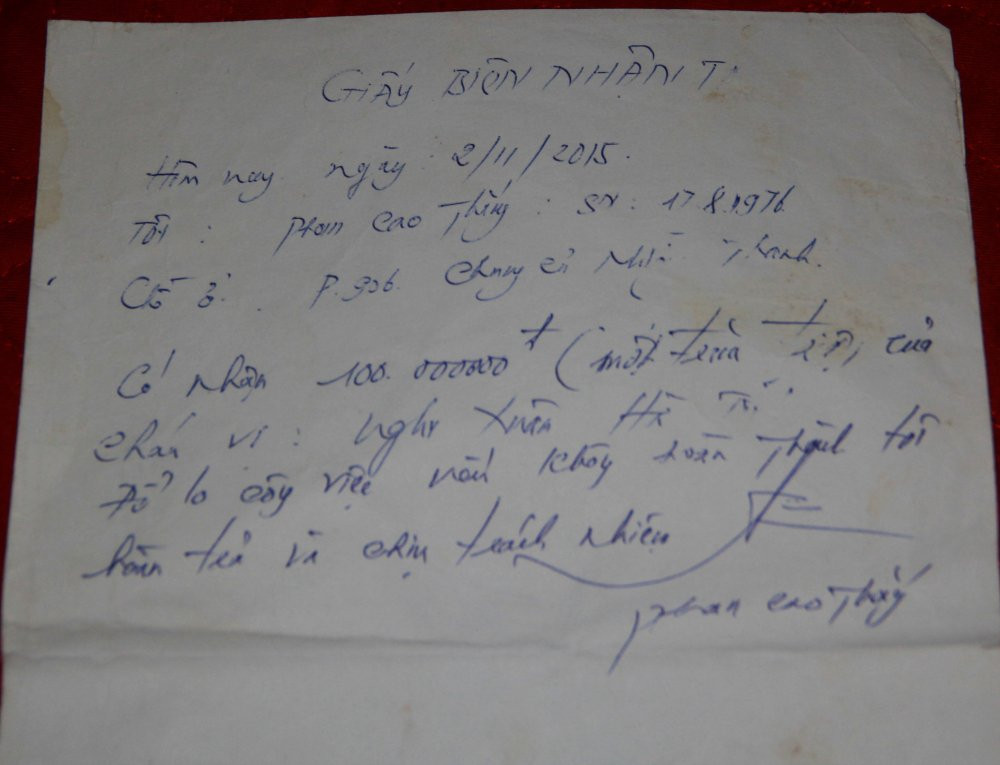 GIẤY BIÊN NHẬN T
Hôm nay ngày 2/11/2015.
Tôi : Phan Cao Thắng : SN : 17.8.1976
Chỗ ở : P.906. Chung cư
Có nhận 100.000000đ (một trăm của
cháu
Để lo công việc nếu không hoàn thành tôi
hoàn trả và chịu trách nhiệm
Phan Cao Thắng